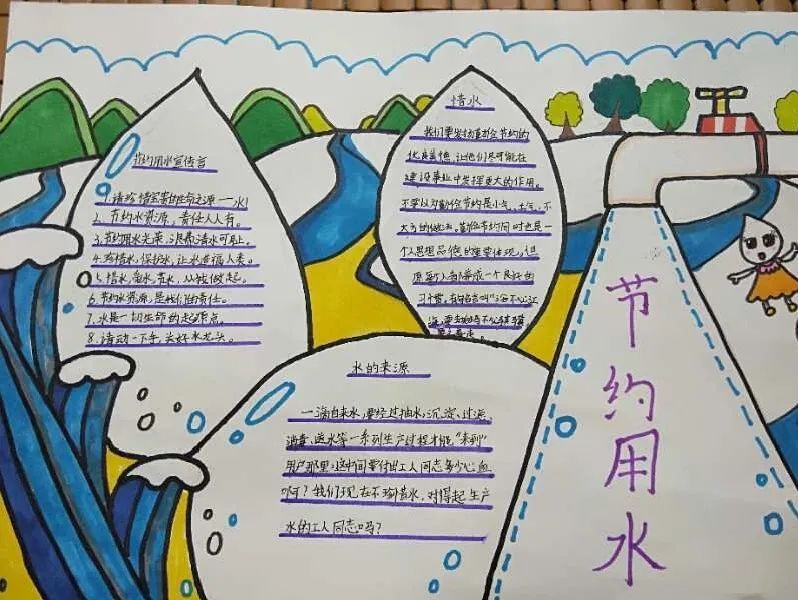 节约用水宣传言
1.请珍惜宝贵的生命之源——水!
2.节约水资源,责任人人有。
3.节约用水光荣,浪费清水可耻。
4.珍惜水,保护水,让水造福人类。
5.惜水,爱水,节水,从我做起。
6.节约水资源,是我们的责任。
7.水是一切生命的起源点。
8.请动一下手,关好水龙头。
惜水
我们要发扬勤俭节约的
优良美德,让他们尽可能在
建设事业中发挥更大的作用。
不要以为勤俭节约是小气、土气、不
大方的做法。勤俭节约同时也是一
个人思想品德的重要体现,但
愿每个人都养成一个良好的
习惯,
水的来源
一滴自来水,要经过抽水,沉淀,过滤,
消毒、送水等一系列生产过程才能“来到”
用户那里;这中间要付出工人同志多少心血
啊?我们现在不珍惜水,对得起生产
水的工人同志吗?
节约用水